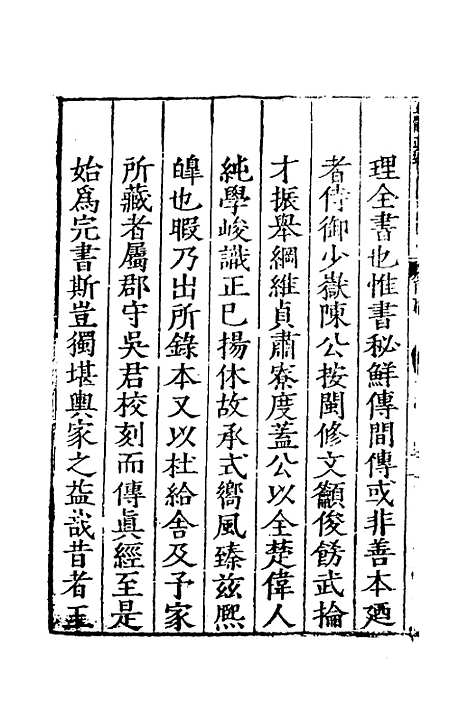 理全書也惟書秘鮮傳間傳或非善本廼
者侍御少嶽陳公按閩修文籲俊餝武掄
才振舉綱維貞肅寮度蓋公以全楚偉人
純學峻識正己揚休故承式嚮風臻兹熈
皥也暇乃出所錄本又以杜給舍及予家
所藏者屬郡守吳君校刻而傳眞經至是
始爲完書斯豈獨堪輿家之益哉昔者王